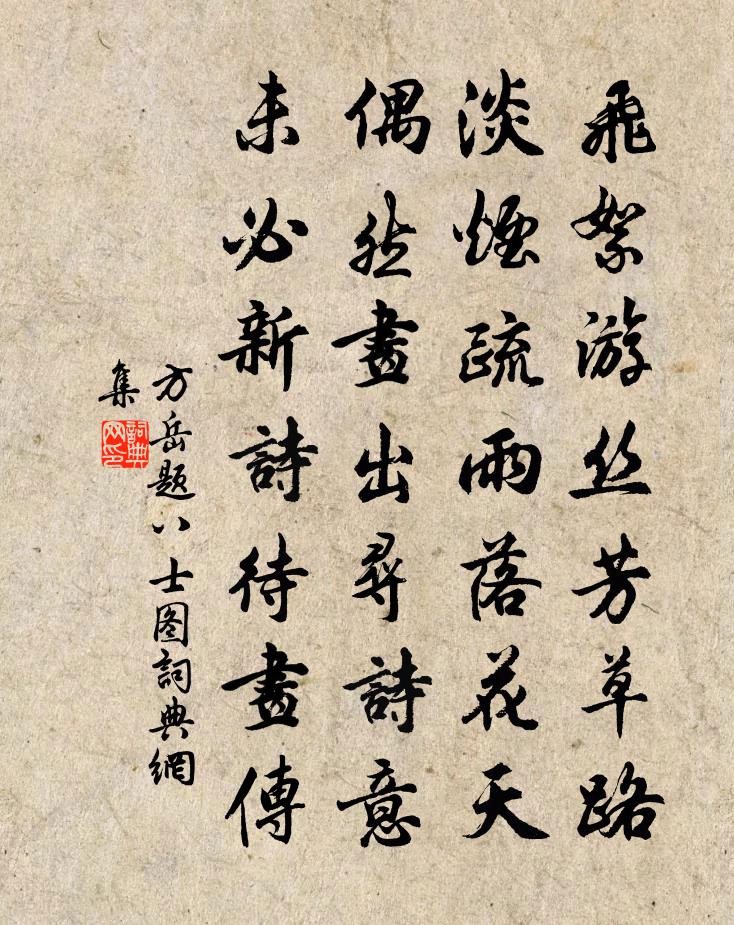 飛絮游丝芳草路
淡煙疏雨落花天
偶然畫出尋詩意
未必新詩待畫傳
方岳題八士图詞典網
集
詞典网印